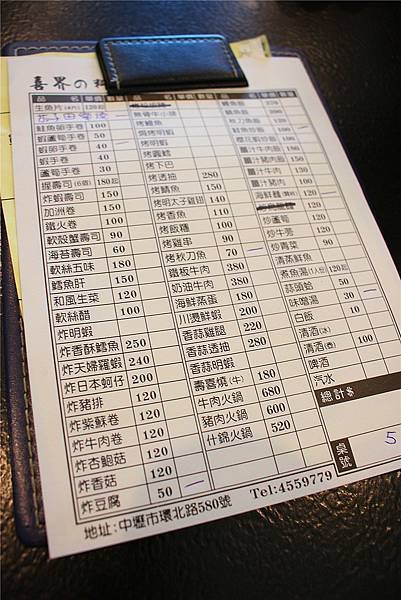 喜界の料
品名 單價 數量
生魚片(大片) 120起
鮭魚卵手卷 100
蝦蘆筍手卷 50
蝦卵手卷 40
蝦手卷 40
蘆筍手卷 30
握壽司(6個) 180起
炸蝦壽司 150
加洲卷 150
鐵火卷 100
軟殼蟹壽司 90
海苔壽司 60
軟絲五味 180
鱈魚肝 150
和風生菜 120
軟絲醋 100
炸明蝦
炸香酥鱈魚 250
炸天婦羅蝦 240
炸日本蚵仔 200
炸豬排 120
炸紫蘇卷 120
炸牛肉卷 120
炸杏鮑菇 120
炸香菇 120
炸豆腐 50
無骨牛小排
烤鱈魚
焗烤明蝦
烤明蝦
烤圓鱈
烤下巴
烤透抽 280
烤鯖魚 150
烤明太子雞翅 140
烤香魚 110
烤飯糰 100
烤雞串 90
烤秋刀魚 70
鐵板牛肉 380
奶油牛肉 380
海鮮蒸蛋 180
川燙鮮蝦 200
香蒜雞腿 220
香蒜透抽 280
香蒜明蝦
壽喜燒(牛) 180
牛肉火鍋 680
豬肉火鍋 600
什錦火鍋 520
炒蘆筍 120
炒牛蒡 120
炒青菜 90
清蒸鮮魚
煮魚湯(1人份) 120起
蒜頭蛤 50
味增湯 30
白飯 10
清酒(冰)
清酒(壺) 100
啤酒
汽水
總計$
桌號 5
地址:中壢市環北路580號 Tel:4559779